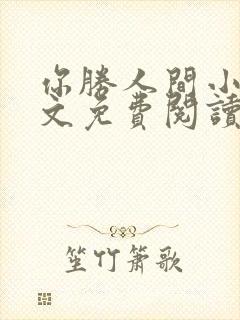 你勝人間小
文免費閱讀
笙竹簫歌